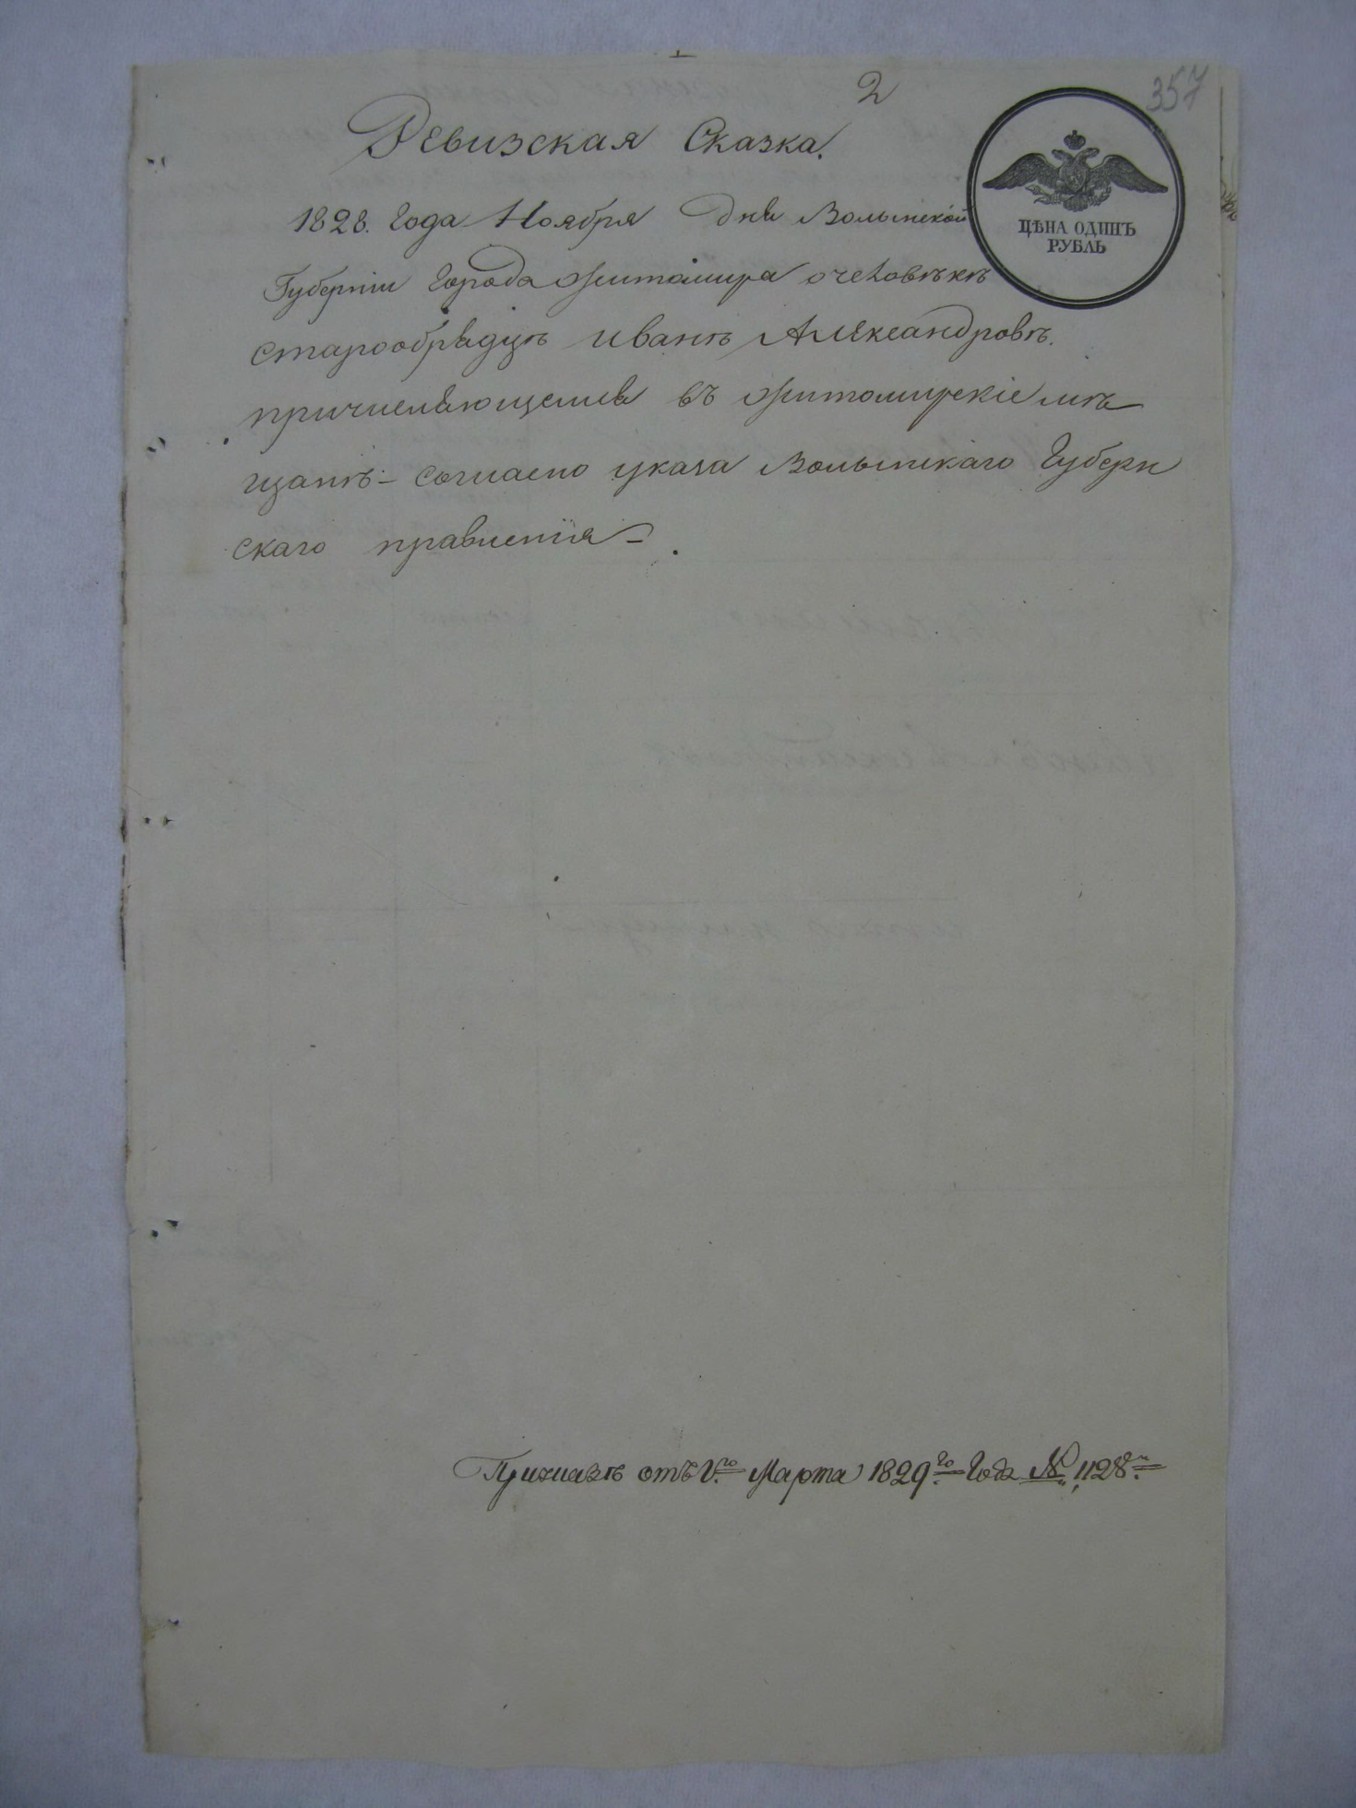 2
357
Ревизская Сказка.
ЦѢНА ОДИНЪ
РУБЛЬ
1828. Года Ноября дня Волынской
Губернiи Города Житомира очеловѣкѣ
старообрядцѣ Иванѣ Александровѣ.
причисляющемся въ Житомирскiе мѣ
щанѣ - согласно указа Волынскаго Губерн
скаго правленiя -
отъ Марта 1829го Года № 1128м